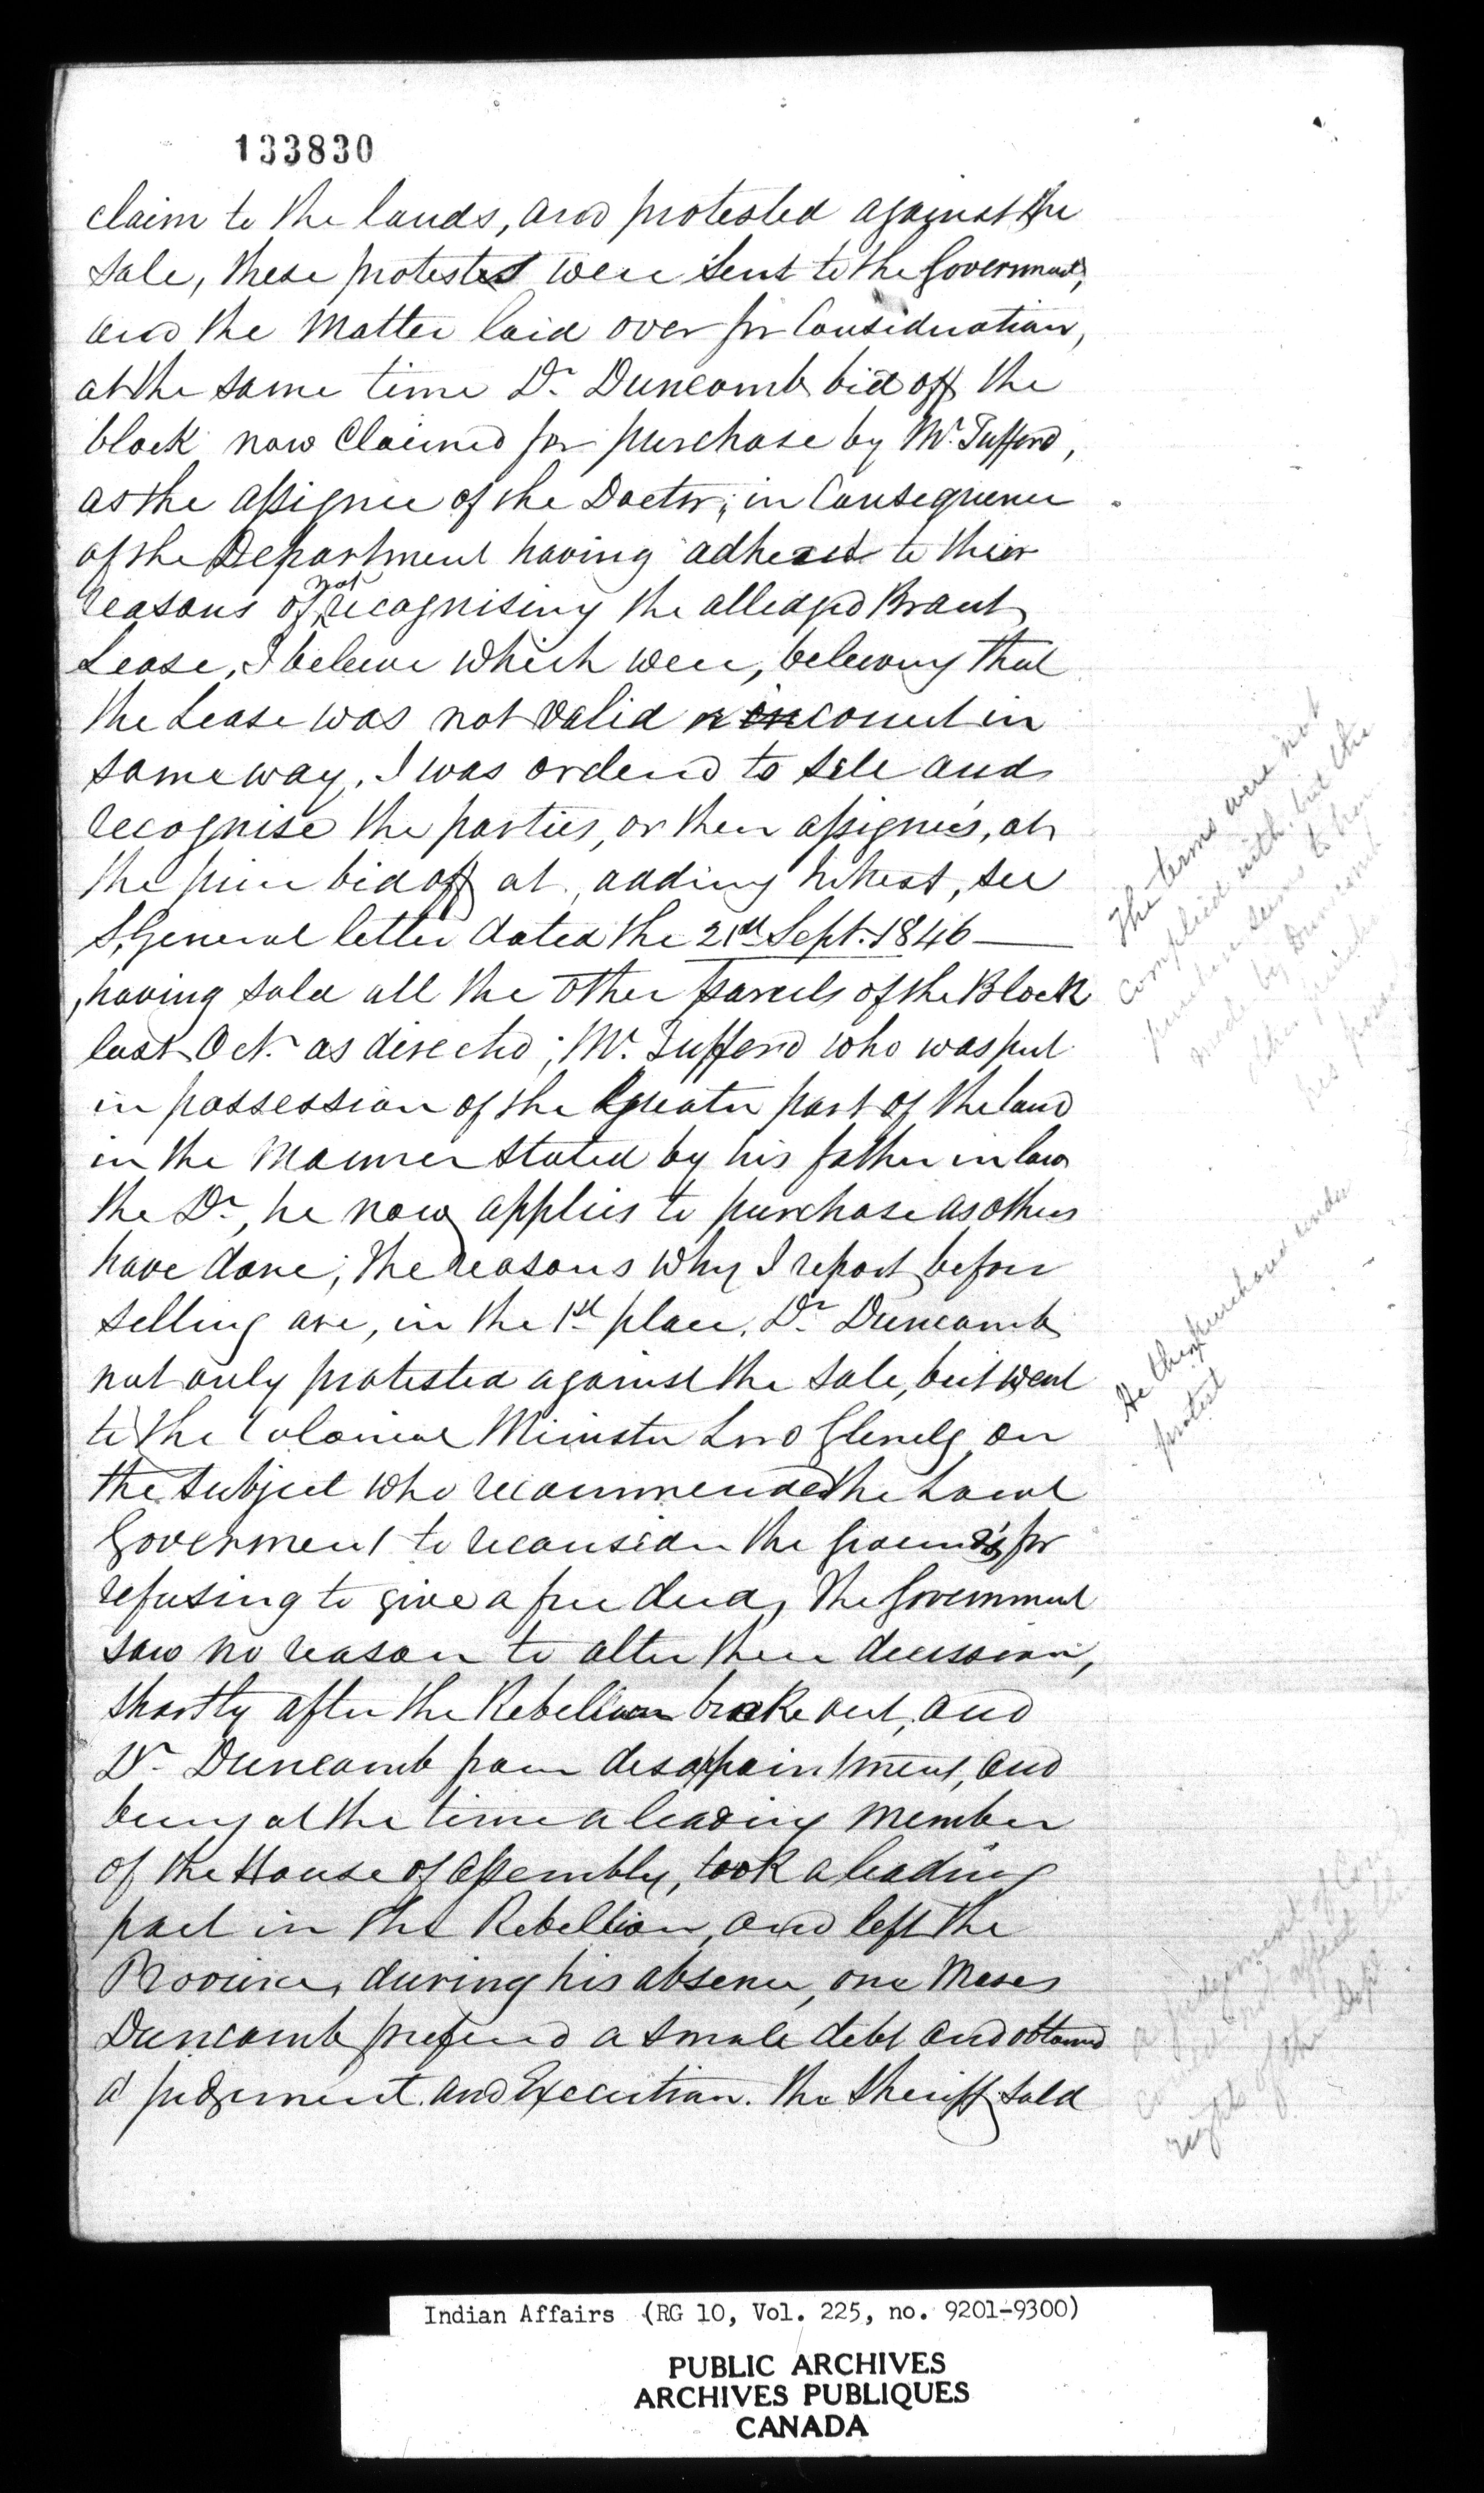 133830
claim to the lands, and protested against the
sale, these protests were sent to the Government,
and the Matter laid over for Consideration,
at the same time Dr Duncomb bid off the
block now Claimed for purchase by Mr. Tufford,
as the assignee of the Doctor; in Consequence
of the Department having adhered to their
reasons of not recognising the alledged Brant
Lease, I beleive which were, beleiving that
the Lease was not valid or correct in
some way, I was ordered to sell and
recognise the parties, or their assignee's, at
the price bid off at, adding Interest, see
S, General letter dated the 21st Sept. 1846
, having sold all the other parcels of the Block
last Oct. as directed; Mr. Tufford who was put
in possession of the Greater part of the land
in the Manner stated by his father in law
the Dr, he now applies to purchase as others
have done; the reasons why I report before
selling are, in the 1st place, Dr Duncomb
not only protested against the sale, but went
to the Colonial Minister Lord Glenelg on
the subject who recommended the Local
Goverment to reconsider the grounds for
refusing to give a free deed, the Government
saw no reason to alter their decission,
shortly after the Rebellion broke out, and
Dr Duncomb from desappointment, and
being at the time a leading Member
of the House of Assembly, took a leading
part in the Rebellion, and left the
Province, during his absence, one Moses
Duncomb prefered a small debt and obtained
a judgment and Execution. the Sheriff sold
The terms were not
complied with, but the
purchase seems to been
made by Duncomb
He then purchased under
protest
a judgement of
rights of the Dept
Indian Affairs (RG 10, Vol. 225, no. 9201-9300)
PUBLIC ARCHIVES
ARCHIVES PUBLIQUES
CANADA